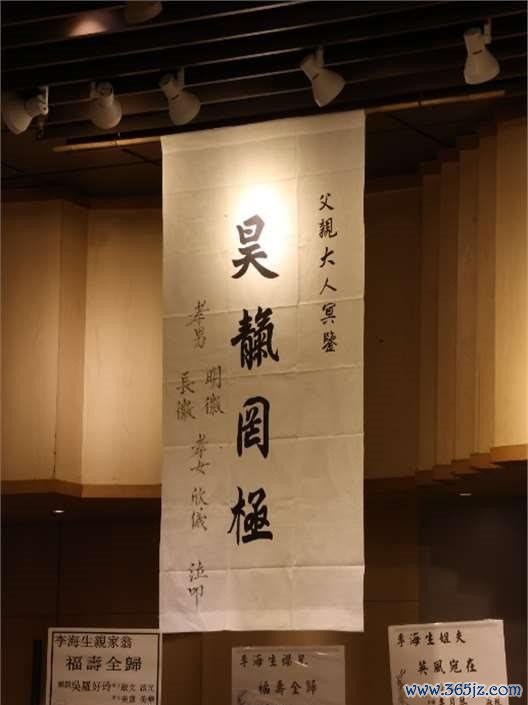 父親大人冥鑒
昊
罔極
孝男
明徽
長徽
孝女欣儀
泣叩
李海生親家翁
福壽全歸
吳羅好玲
李海生
福壽全歸
李海生姐夫
英風宛在
www.365jz.com